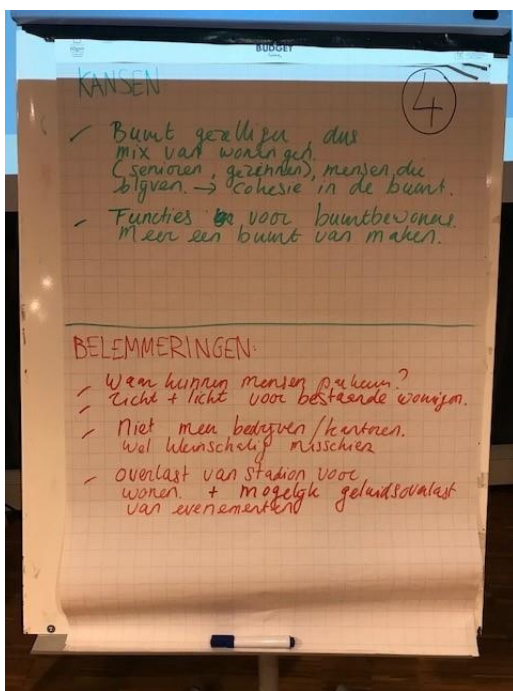 BUDGET
KANSEN
4
Buurt gezelliger dus
mix van woningen.
(senioren, gezinnen), mensen die
blijven. → cohesie in de buurt.
Functies voor buurtbewoners.
Meer een buurt van maken.
BELEMMERINGEN:
Waar kunnen mensen parkeren?
Zicht + licht voor bestaande woningen.
Niet meer bedrijven/kantoren.
wol kleinschalig misschien
overlast van stadion voor
wonen. + mogelijk geluidsoverlast
van evenementen